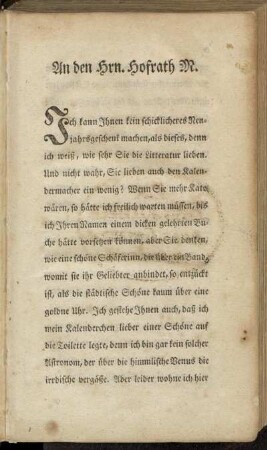 An den Hrn. Hofrath M.
Ich kann Ihnen kein schicklicheres Neu-
jahrsgeschenk machen, als dieses, denn
ich weiß, wie sehr Sie die Litteratur lieben.
Und nicht wahr, Sie lieben auch den Kalen-
dermacher ein wenig? Wenn Sie mehr Kato
wären, so hätte ich freilich warten müssen, bis
ich Ihren Namen einem dicken gelehrten Bu-
che hätte vorsetzen können, aber Sie denken,
wie eine schöne Schäferinn, die über ein Band,
womit sie ihr Geliebter anbindet, so entzückt
ist, als die städtische Schöne kaum über eine
goldne Uhr. Ich gestehe Ihnen auch, daß ich
mein Kalenderchen lieber einer Schöne auf
die Toilette legte, denn ich bin gar kein solcher
Astronom, der über die himmlische Venus die
irrdische vergäße. Aber leider wohne ich hier